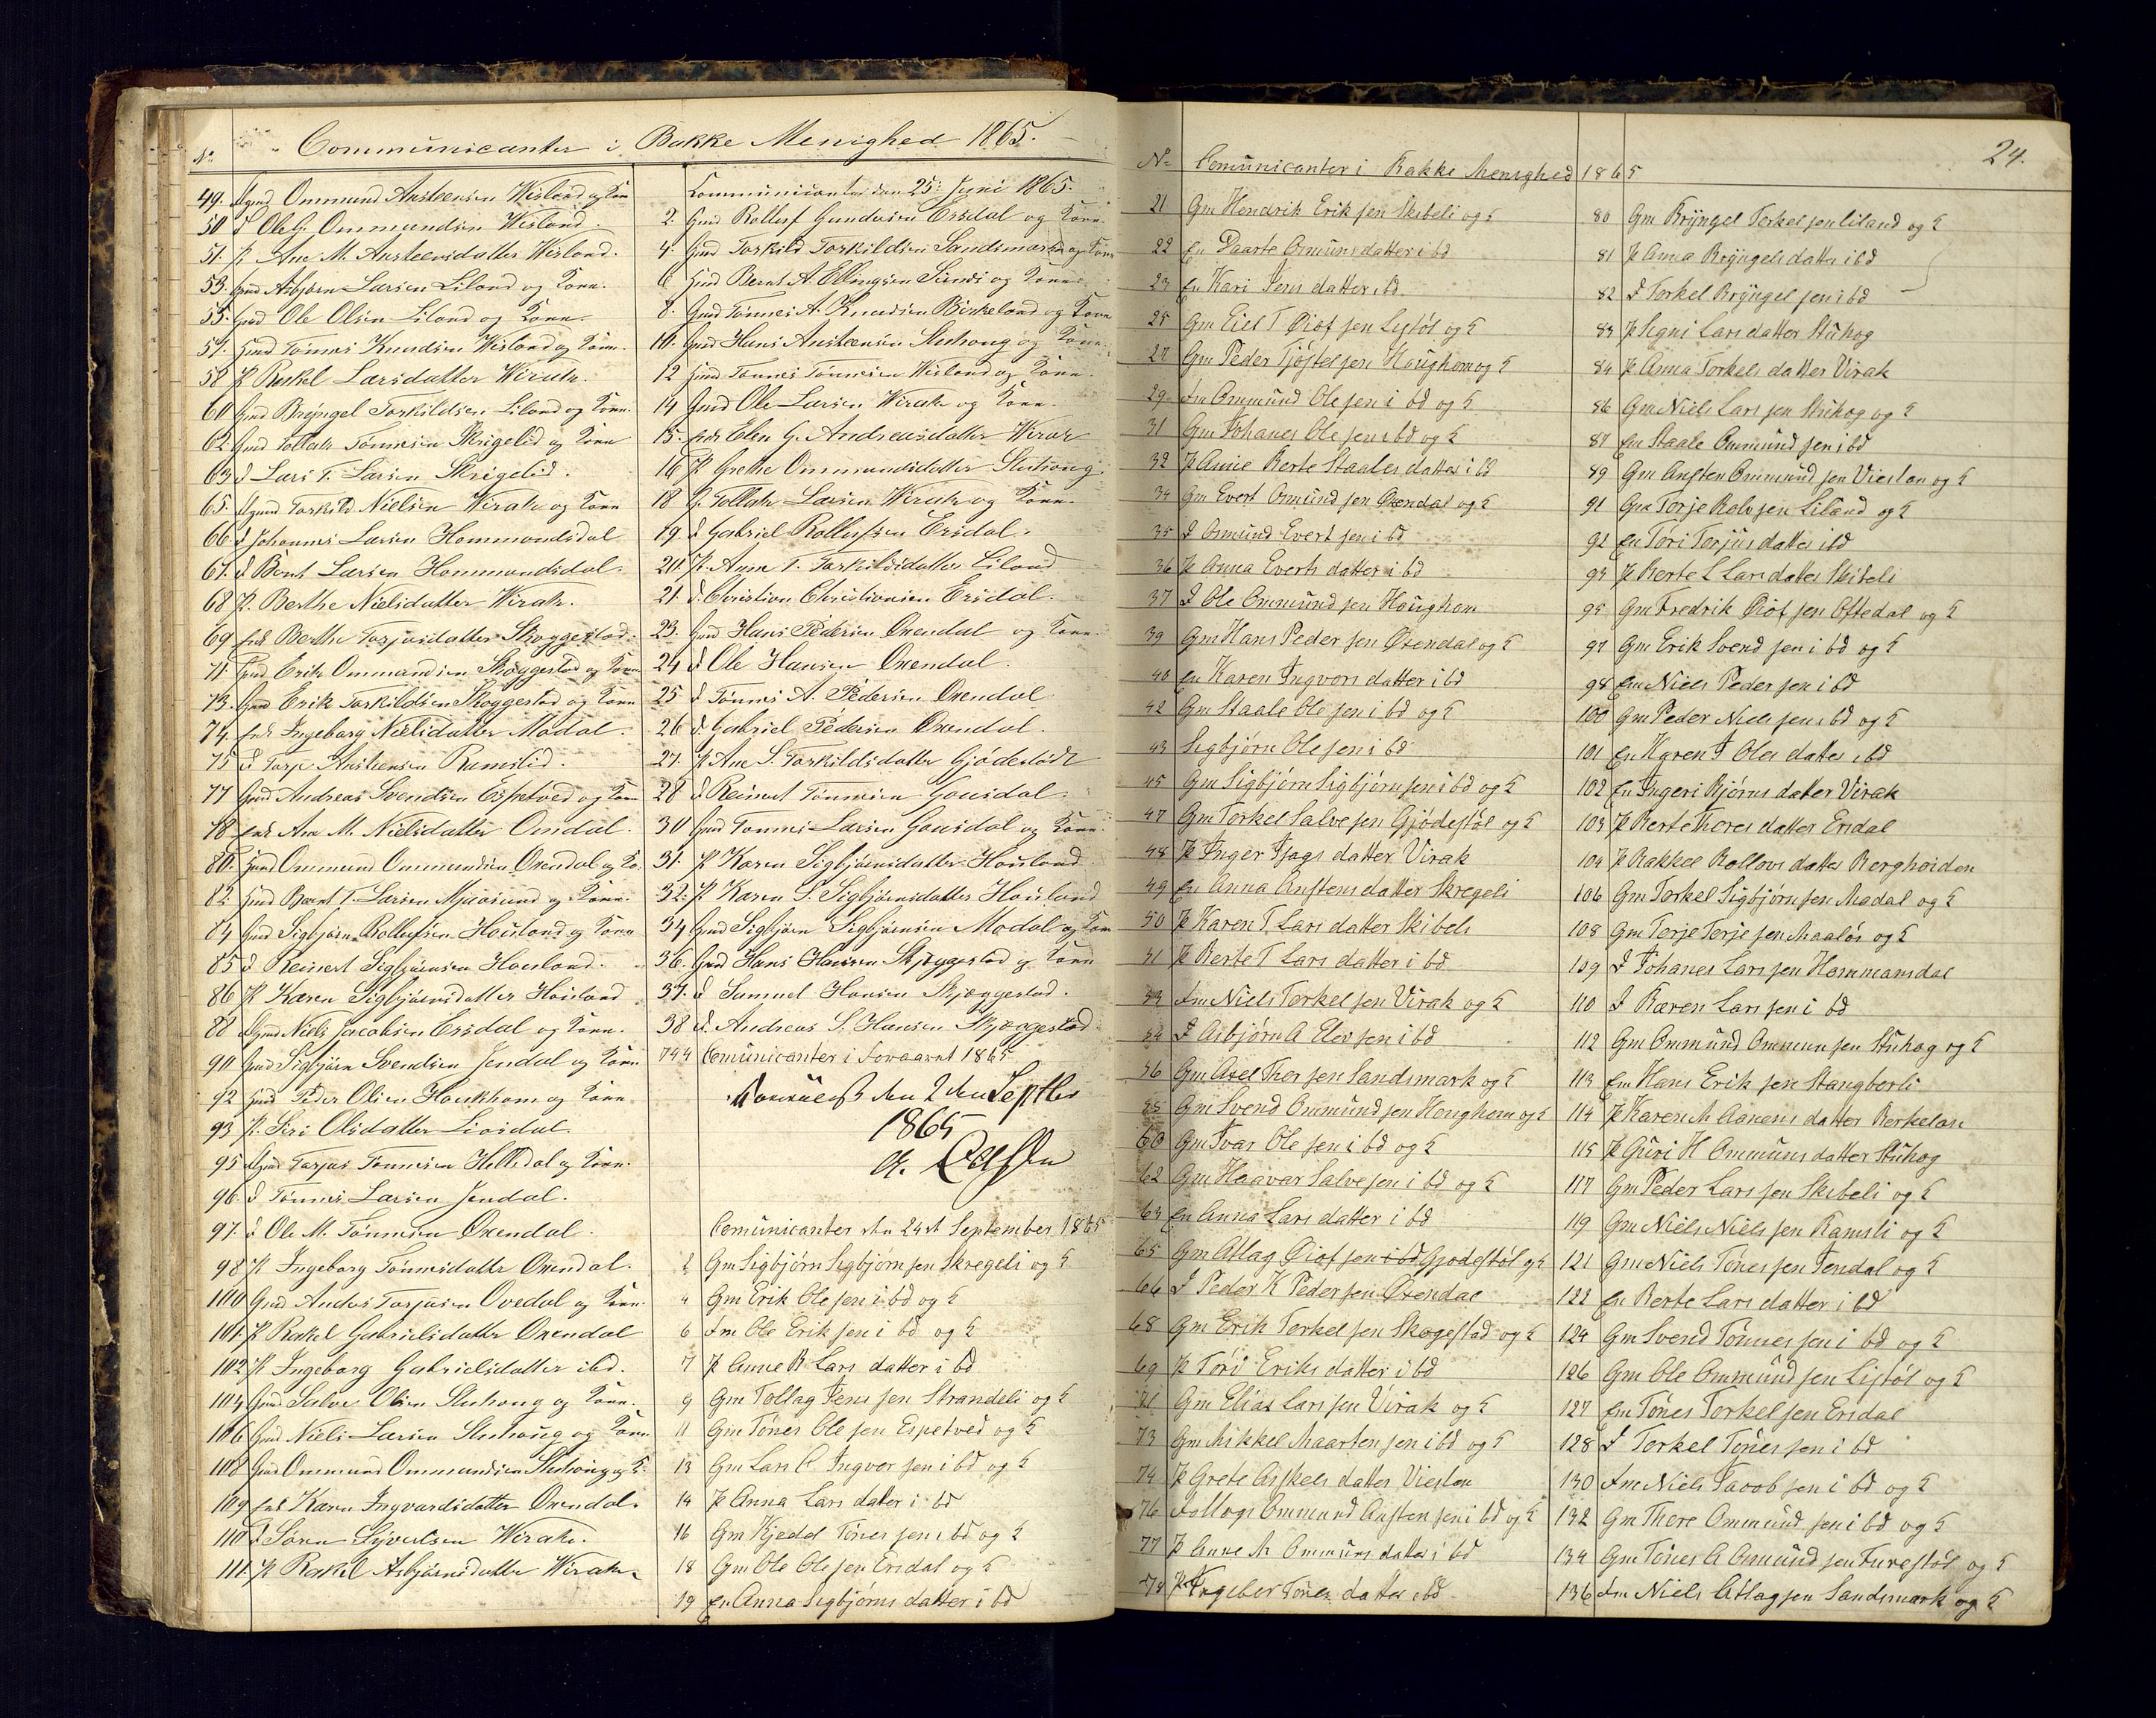 No. Communicanter i Bakke Menighed 1865.
49. Gmd Ommund Anstensen Wisland og Kone
50 d Ole G. Ommundsen Wisland.
51. p Ane M. Anstensdatter Wisland.
53. Gmd Asbjørn Larsen Liland og Kone.
55. Gmd Ole Olsen Liland og Kone.
57. Gmd Tønnes Knudsen Wisland og Kone.
58 p Rakel Larsdatter Wirak.
60 Gmd Brÿngel Torkildsen Liland og Kone.
62. Gmd Tollak Tønnesen Skrigelid og Kone
63 d Lars T. Larsen Skrigelid.
65. Gmd Torkild Nielsen Wirak og Kone
66. d Johannes Larsen Hommundsdal
67. d Bent Larsen Hommundsdal.
68 p. Berthe Nielsdatter Wirak.
69 Enk Berthe Torjusdatter Skoggestad.
71. Gmd Erik Ommundsen Skoggestad og Kone
73. Gmd Erik Torkildsen Skoggestad og Kone
74. Enk Ingeborg Nielsdatter Modal.
75 d Torje Anstensen Ramslid.
77 Gmd Andreas Svendsen Espetved og Kone
78 Enk Ane M. Nielsdatter Omdal.
80. Gmd Ommund Ommundsen Oxendal og Ko.
82. Gmd Bernt T. Larsen Mjuosund og Kone.
84 Gmd Sigbjørn Rollefsen Housland og Kone
85 d Reinert Sigbjørnsen Housland.
86 p Karen Sigbjørnsdatter Housland
88 Gmd Niels Jacobsen Ersdal og Kone.
90 Gmd Sigbjørn Svendsen Jendal og Kone
92 Gmd Peder Olsen Houkhom og Kone
93 p. Siri Olsdatter Liosdal.
95 Gmd Torjus Tønnesen Helledal og Kone.
96. d Tønnes Larsen Jendal.
97. d Ole M. Tønnesen Oxendal.
98 p Ingeborg Tønnesdatter Oxendal.
100 Gmd Anders Torjusen Ovedal og Kone.
101. p Rakel Gabrielsdatter Oxendal
102 p Ingeborg Gabrielsdatter ibd.
104 Gmd Salve Olsen Stuhoug og Kone.
106 Gmd Niels Larsen Stuhoug og Kone
108 Gmd Ommund Ommundsen Stuhoug og K.
109 Enk Karen Ingvardsdatter Oxendal.
110 d Søren Syvertsen Wirak.
111. p Rakel Asbjørnsdatter Wirak.
Communicanter den 25. Juni 1865.
2. Gmd Rollef Gundersen Ersdal og Kone.
4. Gmd Torkild Torkildsen Sandsmark og Kone
6 Gmd Bernt A. Ellingsen Sinds og Kone
8. Gmd Tønnes A. Knudsen Birkeland og Kone
10. Gmd Hans Anstensen Stuhoug og Kone.
12 Gmd Tønnes Tønnesen Wisland og Kone.
14 Gmd Ole Larsen Wirak og Kone.
15. Enk Elen G. Andreasdatter Wirak
16 p Grethe Ommundsdatter Stuhoug.
18 G. Tollak Larsen Wirak og Kone.
19. d Gabriel Rollefsen Ersdal.
20. p. Anne T. Torkildsdatter Liland
21. d. Christian Christiansen Ersdal.
23. Gmd Hans Pedersen Oxendal og Kone.
24 d Ole Hansen Oxendal.
25 d Tønnes A. Pedersen Oxendal
26 d. Gabriel Pedersen Oxendal.
27. p Ane S. Torkildsdatter Gjødestødt
28 d Reinert Tønnesen Gousdal.
30 Gmd Tønnes Larsen Gousdal og Kone.
31. p Karen Sigbjørnsdatter Housland
32. p Karen S. Sigbjørnsdatter Housland
34 Gmd Sigbjørn Sigbjørnsen Modal og Kone
36. Gmd Hans Hansen Skjeggestad og Kone
37. d Samuel Hansen Skjeggestad.
38 d. Andreas S. Hansen Skjeggestad.
744 Comünicanter i Foraaret 1865
den 2den Septbr
1865
Comünicanter den 24de September 1865
2 Gm Sigbjørn Sigbjørn sen Skregeli og K
4 Gm Erik Ole sen i bd og K
6 Fm Ole Erik sen i bd og K
7 P Anne B Lars datter i bd
9 Gm Tollag Jens sen Strandeli og K
11 Gm Tønes Ole sen Espetved og K
13 Gm Lars C. Ingvor sen i bd og K
14 P Anna Lars dater i bd
16 Gm Kjedel Tønes sen i bd og K
18 Gm Ole Ole sen Ersdal og K
19 En Anna Sigbjørns datter i bd
24.
No. Comünicanter i Bakke Menighed 1865
21 Gm Hendrik Erik sen Skibeli og K
22 En Daarte Omüns datter i bd
23 En Kari Jens datter i bd
25 Gm Eiel T Øiof sen Lystøl og K
27 Gm Peder Tjøstel sen Houghom og K
29 Fm Ommünd Ole sen i bd og K
31 Gm Johanes Ole sen i bd og K
32 P Anne Berte Staales datter i bd
34 Gm Evert Omünd sen Øxendal og K
35 D Omünd Evert sen i bd
36 P Anna Everts datter i bd
37 D Ole Ommünd sen Houghom
39 Gm Hans Peder sen Øxendal og K
40 En Karen Ingvors datter i bd
42 Gm Staale Ole sen i bd og K
43 Sigbjørn Ole sen i bd
45 Gm Sigbjørn Sigbjørn sen i bd og K
47 Gm Torkel Salve sen Gjødestøl og K
48 P Inger Isags datter Virak
49 En Anna Anstens datter Skregeli
50 P Karen T Lars datter Skibeli
51 P Berte T Lars datter i bd
53 Fm Niels Torkel sen Virak og K
54 D Asbjørn A Eler sen i bd
56 Gm Axel Thor sen Sandsmark og K
58 Gm Svend Ommünd sen Houghom og K
60 Gm Ivar Ole sen i bd og K
62 Gm Haavar Salve sen i bd og K
63 En Anna Lars datter i bd
65 Gm Atlag Øiof sen i bd Gjodestøl og K
66 D Peder K Peder sen Øxendal
68 Gm Erik Torkel sen Skogestad og K
69 P Tori Eriks datter i bd
71 Gm Elias Lars sen Virak og K
73 Gm Mikkel Maarten sen i bd og K
74 P Grete Askels datter Vieslan
76 Ommund Ansten sen i bd og K
77 P Anne M Ommüns datter i bd
78 P Ingebor Tønes datter i bd
80 Gm Brÿngel Torkel sen Liland og K
81 P Anna Brÿngels datter i bd
82 D Torkel Brÿngel sen i bd
83 P Segni Lars datter Stühog
84 P Anna Torkels datter Virak
86 Gm Niels Lars sen Stühog og K
87 Em Staale Ommünd sen i bd
89 Gm Ansten Ommünd sen Vieslan og K
91 Gm Torje Rolv sen Liland og K
92 En Tori Torjüs datter i bd
93 P Berte L Lars datter Skibeli
95 Gm Fredrik Øiof sen Oftedal og K
97 Gm Erik Svend sen i bd og K
98 Em Niels Peder sen i bd
100 Gm Peder Niels sen i bd og K
101 En Karen J Oles datter i bd
102 En Ingeri Bjørns datter Virak
103 P Berte Thores datter Ersdal
104 P Rakkel Rollovs datter Berghoiden
106 Gm Torkel Sigbjørn sen Modal og K
108 Gm Terje Terje sen Maaløs og K
109 D Johanes Lars sen Hommansdal
110 D Bæren Lars sen i bd
112 Gm Ommünd Ommun sen Stühog og K
113 Em Hans Erik sen Stangberli
114 P Karen M Aanens datter Berkelan
115 P Güri H Ommüns datter Stühog
117 Gm Peder Lars sen Skibeli og K
119 Gm Niels Niels sen Ramsli og K
121 Gm Niels Tønes sen Jendal og K
122 En Berte Lars datter i bd
124 Gm Svend Tønnes sen i bd og K
126 Gm Ole Ommünd sen Listøl og K
127 Em Tønes Torkel sen Ersdal
128 D Torkel Tønes sen i bd
130 Fm Niels Jacob sen i bd og K
132 Gm Thore Ommünd sen i bd og K
134 Gm Tønes A Omünd sen Furestøl og K
136 Fm Niels Atlag sen Sandsmark og K